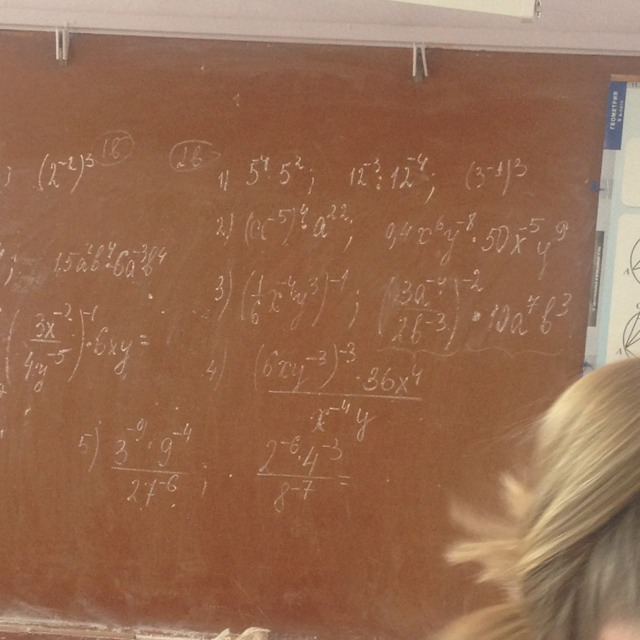 (2⁻²)³ 1б 2б 1) 5⁴ 5²; 12⁻³ : 12⁻⁴; (3⁻¹)³
2) (a⁻⁵)⁴ a²²; 0,4x⁶y⁻⁸ · 50x⁻⁵y⁹
3) (1/6 x⁻⁴y³)⁻¹; (3a⁻⁴/2b⁻³)⁻² · 10a⁷b³
(3x⁻²/4y⁻³)⁻¹ · 6xy =
4) (6xy⁻³)⁻³ · 36x⁴ / x⁻⁴y
5) 3⁻⁹ · 9⁻⁴ / 27⁻⁶; 2⁻⁶ · 4⁻³ / 8⁻⁷ =
ГЕОМЕТРИЯ